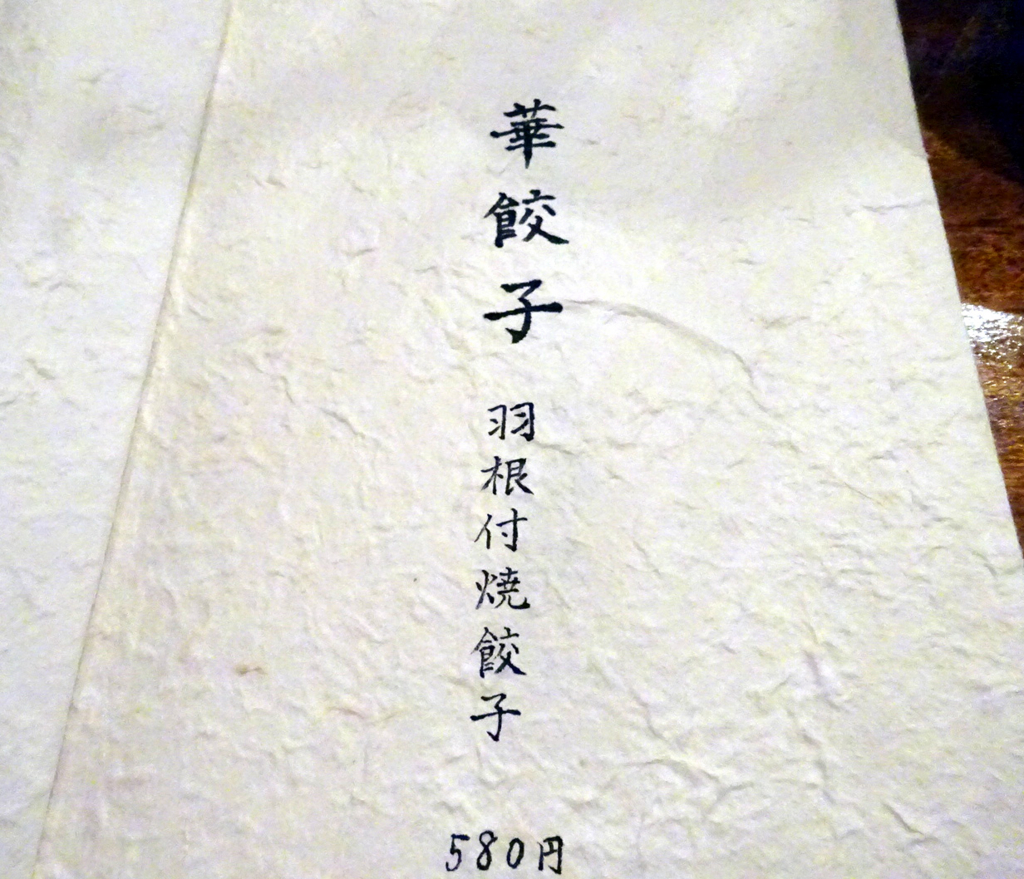 華餃子
羽根付焼餃子
580円